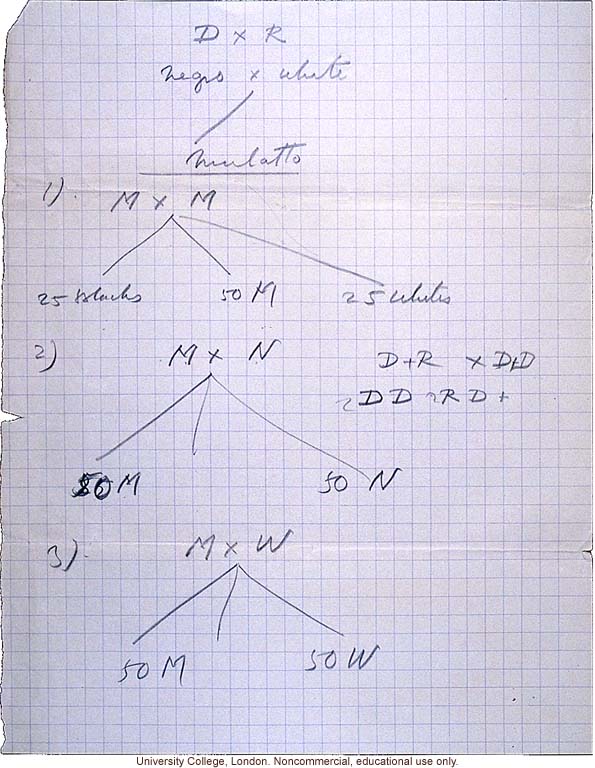 D x R
negro x white
mulatto
1). M x M
25 blacks 50 M 25 whites
2) M x N D+R x D+D
2DD 2RD +
50 M 50 N
3). M x W
50 M 50 W
University College, London. Noncommercial, educational use only.